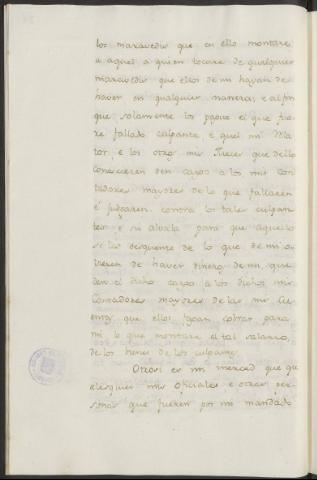 los maravedis que en ello montare
a aquel a quien tocare de qualquier
maravedis que ellos de mi hayan de
haver en qualquier manera, e al fin
que solamente los pague el que fue
re fallado culpante e quel mi
tor, e los otros mis Jueces que dello
conoscieren den cargo a los mis con
tadores mayores de lo que fallaren
e judgaren contra los tales culpan
tes e su alvala para que aquello
se les desquente de lo que de mi o
vieren de haver dineros de mi, que
den el dicho cargo a los dichos mis
contadores mayores de las mis Cu
entas que ellos fagan cobrar para
mi lo que montare el tal salario,
de los bienes de los culpantes
Otrosi es mi merced que qua
lesquier mis oficiales e otras per
sonas que fueren por mi mandado